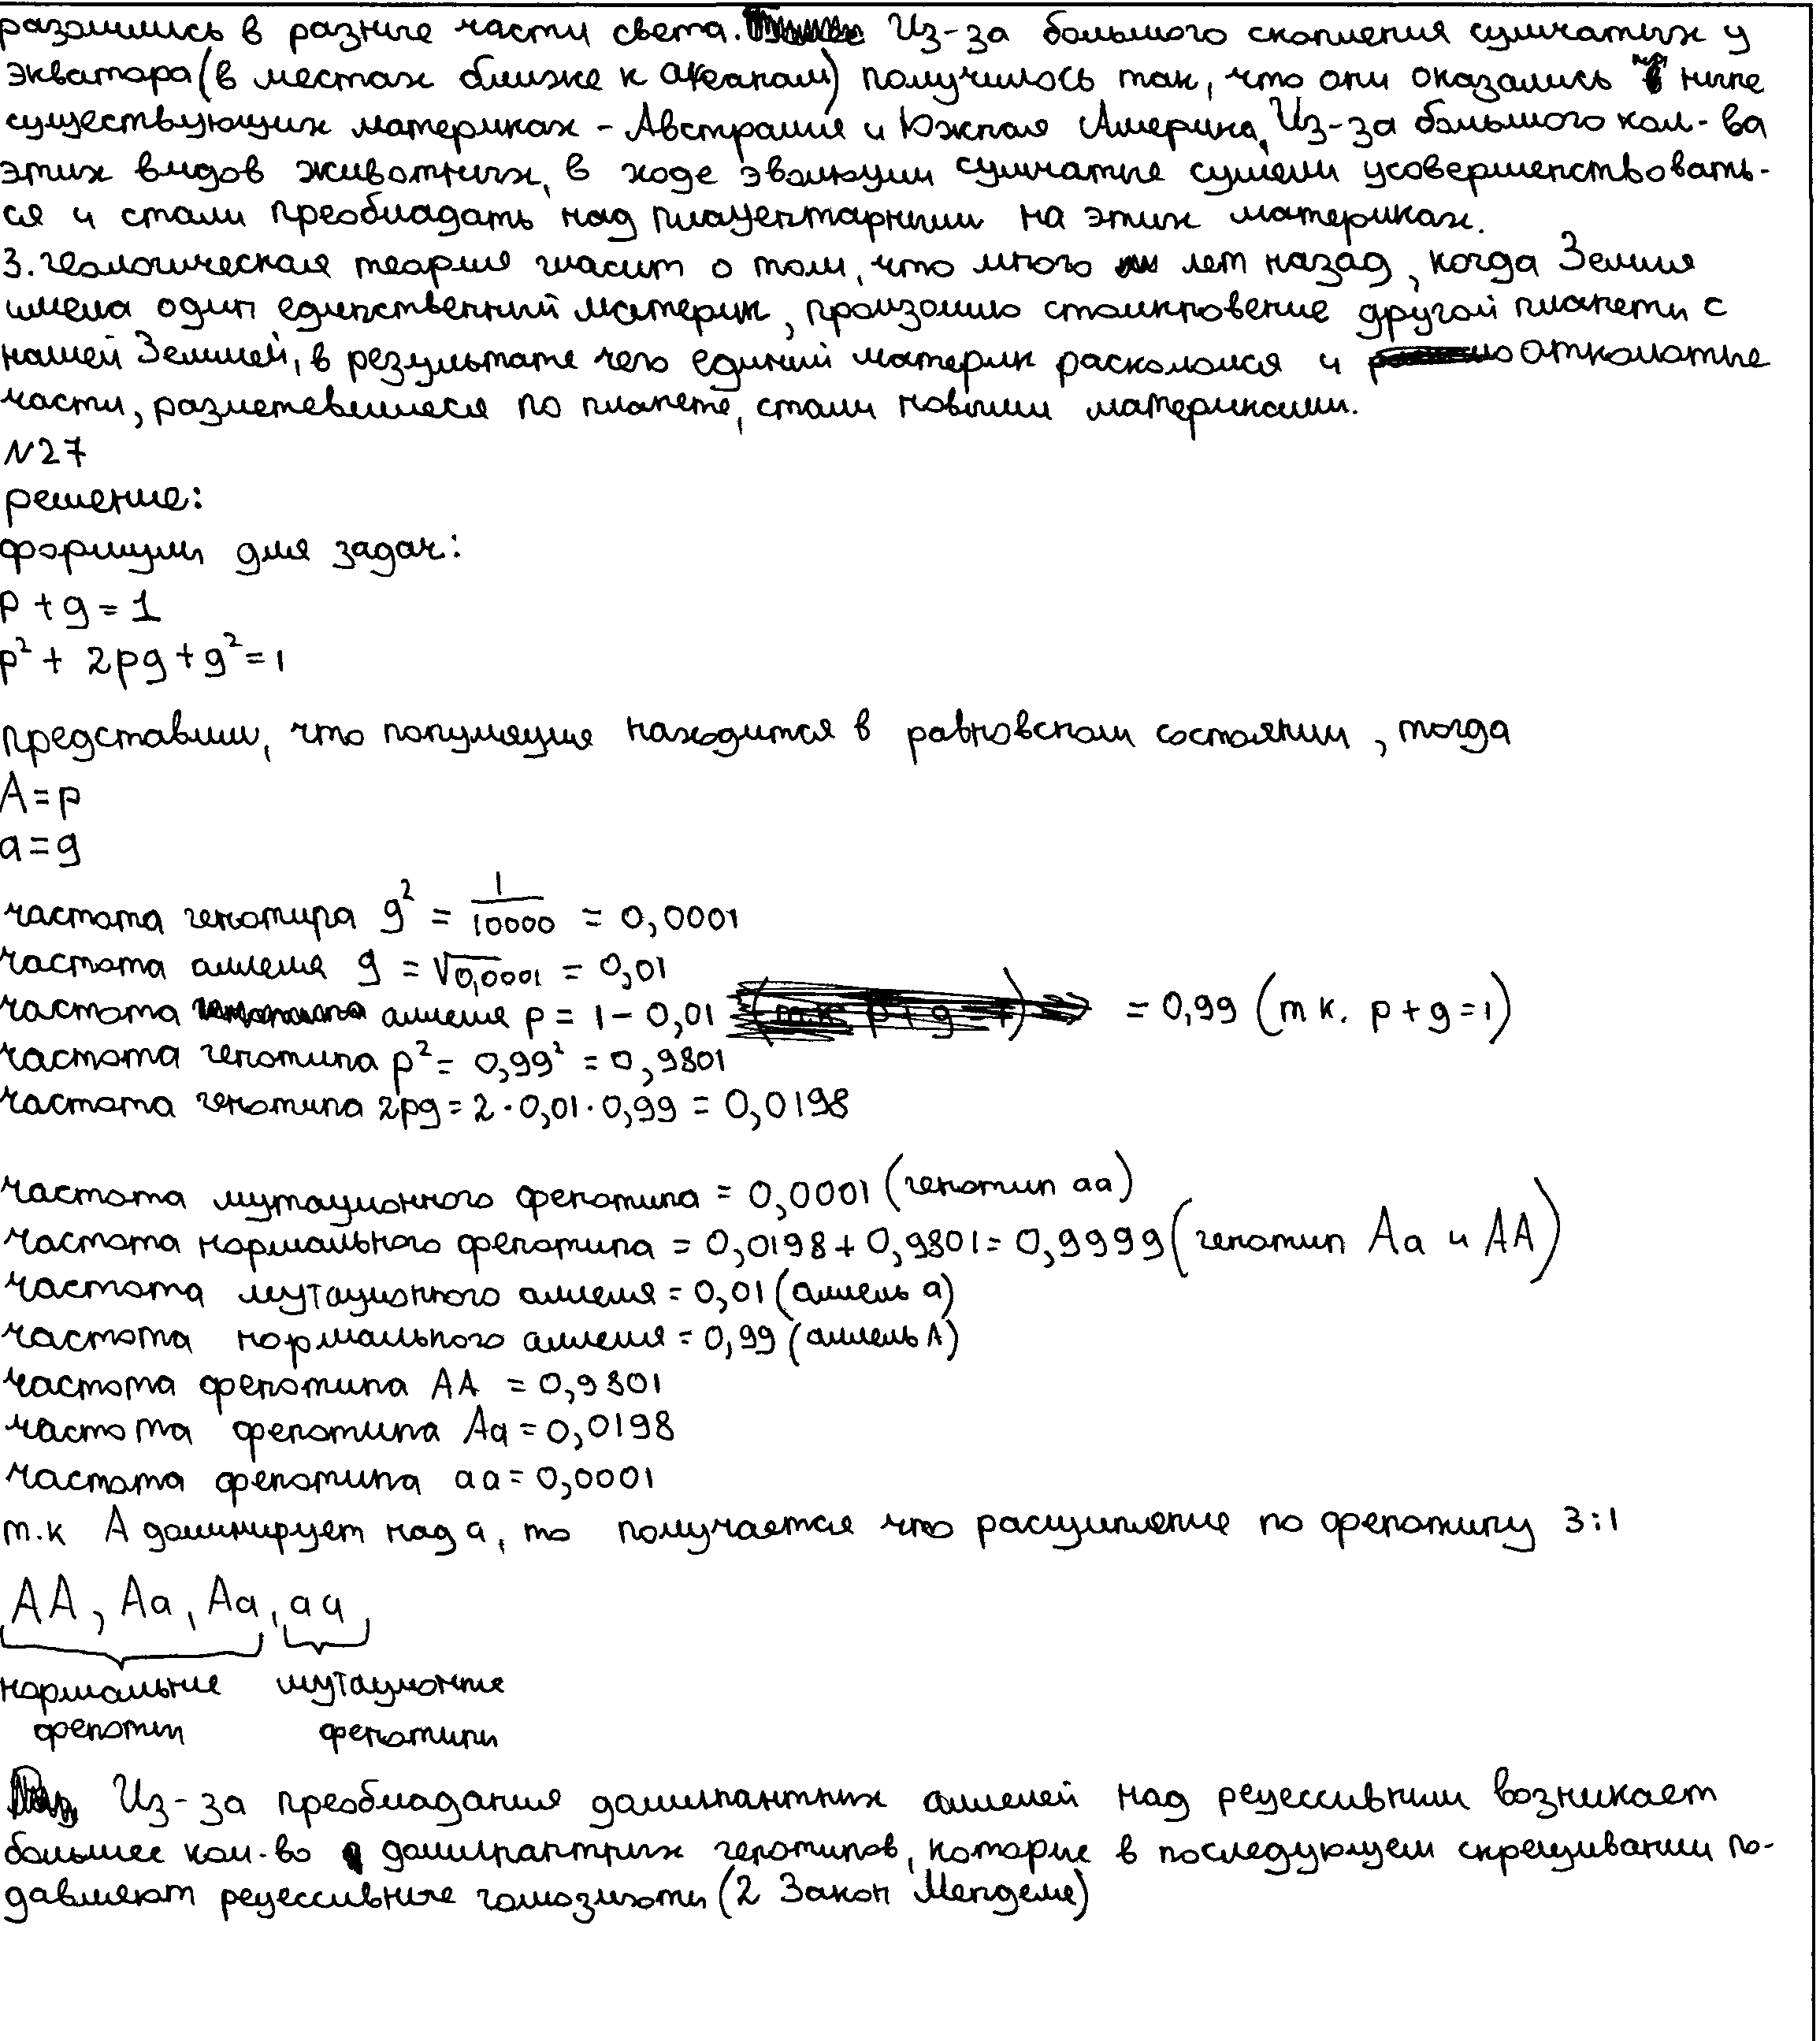 разошлись в разные части света. Из-за большого скопления сумчатых у
экватора (в местах ближе к океанам) получилось так, что они оказались на ныне
существующих материках - Австралия и Южная Америка. Из-за большого кол-ва
этих видов животных, в ходе эволюции сумчатые сумели усовершенствовать-
ся и стали преобладать над плацентарными на этих материках.
3. геологическая теория гласит о том, что много лет назад, когда Земля
имела один единственный материк, произошло столкновение другой планеты с
нашей Землей, в результате чего единый материк раскололся и отколотые
части, разлетевшиеся по планете, стали новыми материками.
N27
решение:
формулы для задач:
p + g = 1
p² + 2pg + g² = 1
представим, что популяция находится в равновсном состоянии, тогда
A = p
a = g
частота генотипа g² = 1/10000 = 0,0001
частота аллеля g = √0,0001 = 0,01
частота аллеля p = 1 - 0,01 = 0,99 (т к. p + g = 1)
частота генотипа p² = 0,99² = 0,9801
частота генотипа 2pg = 2 · 0,01 · 0,99 = 0,0198
частота мутационного фенотипа = 0,0001 (генотип aa)
частота нормального фенотипа = 0,0198 + 0,9801 = 0,9999 (генотип Aa и AA)
частота мутационного аллеля = 0,01 (аллель a)
частота нормального аллеля = 0,99 (аллель A)
частота фенотипа AA = 0,9801
частота фенотипа Aa = 0,0198
частота фенотипа aa = 0,0001
т.к A доминирует над a, то получается что расщипление по фенотипу 3:1
AA, Aa, Aa, aa
нормальные мутационные
фенотип фенотипы
Из-за преобладания доминантных аллелей над рецессивными возникает
большее кол-во доминантных генотипов, которые в последующем скрещивании по-
давляют рецессивные гомозиготы (2 Закон Менделя)